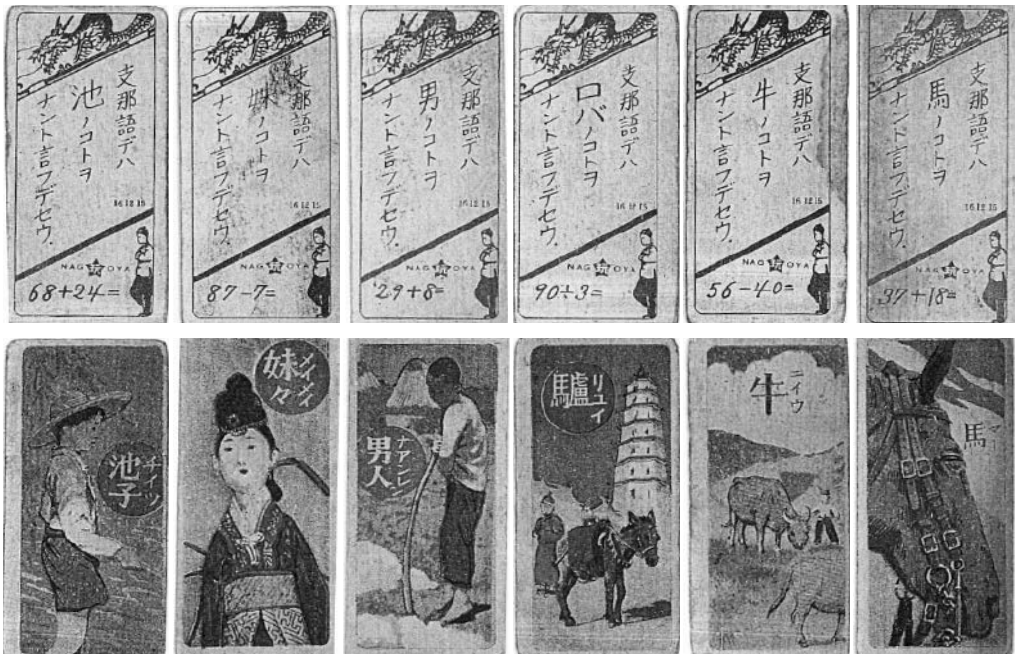 支那語デハ
池ノコトヲ
ナント言フデセウ.
16 12 15
NAG玩OYA
68+24=
支那語デハ
妹ノコトヲ
ナント言フデセウ.
16 12 15
NAG玩OYA
87-7=
支那語デハ
男ノコトヲ
ナント言フデセウ.
NAG玩OYA
29+8=
支那語デハ
ロバノコトヲ
ナント言フデセウ.
16 12 15
NAG玩OYA
90÷3=
支那語デハ
牛ノコトヲ
ナント言フデセウ.
NAG玩OYA
56-40=
支那語デハ
馬ノコトヲ
ナント言フデセウ.
16 12 15
NAG玩OYA
37+18=
チイツ
池子
メイメイ
妹々
ナアンレン
男人
リユイ
驢
ニイウ
牛
マー
馬